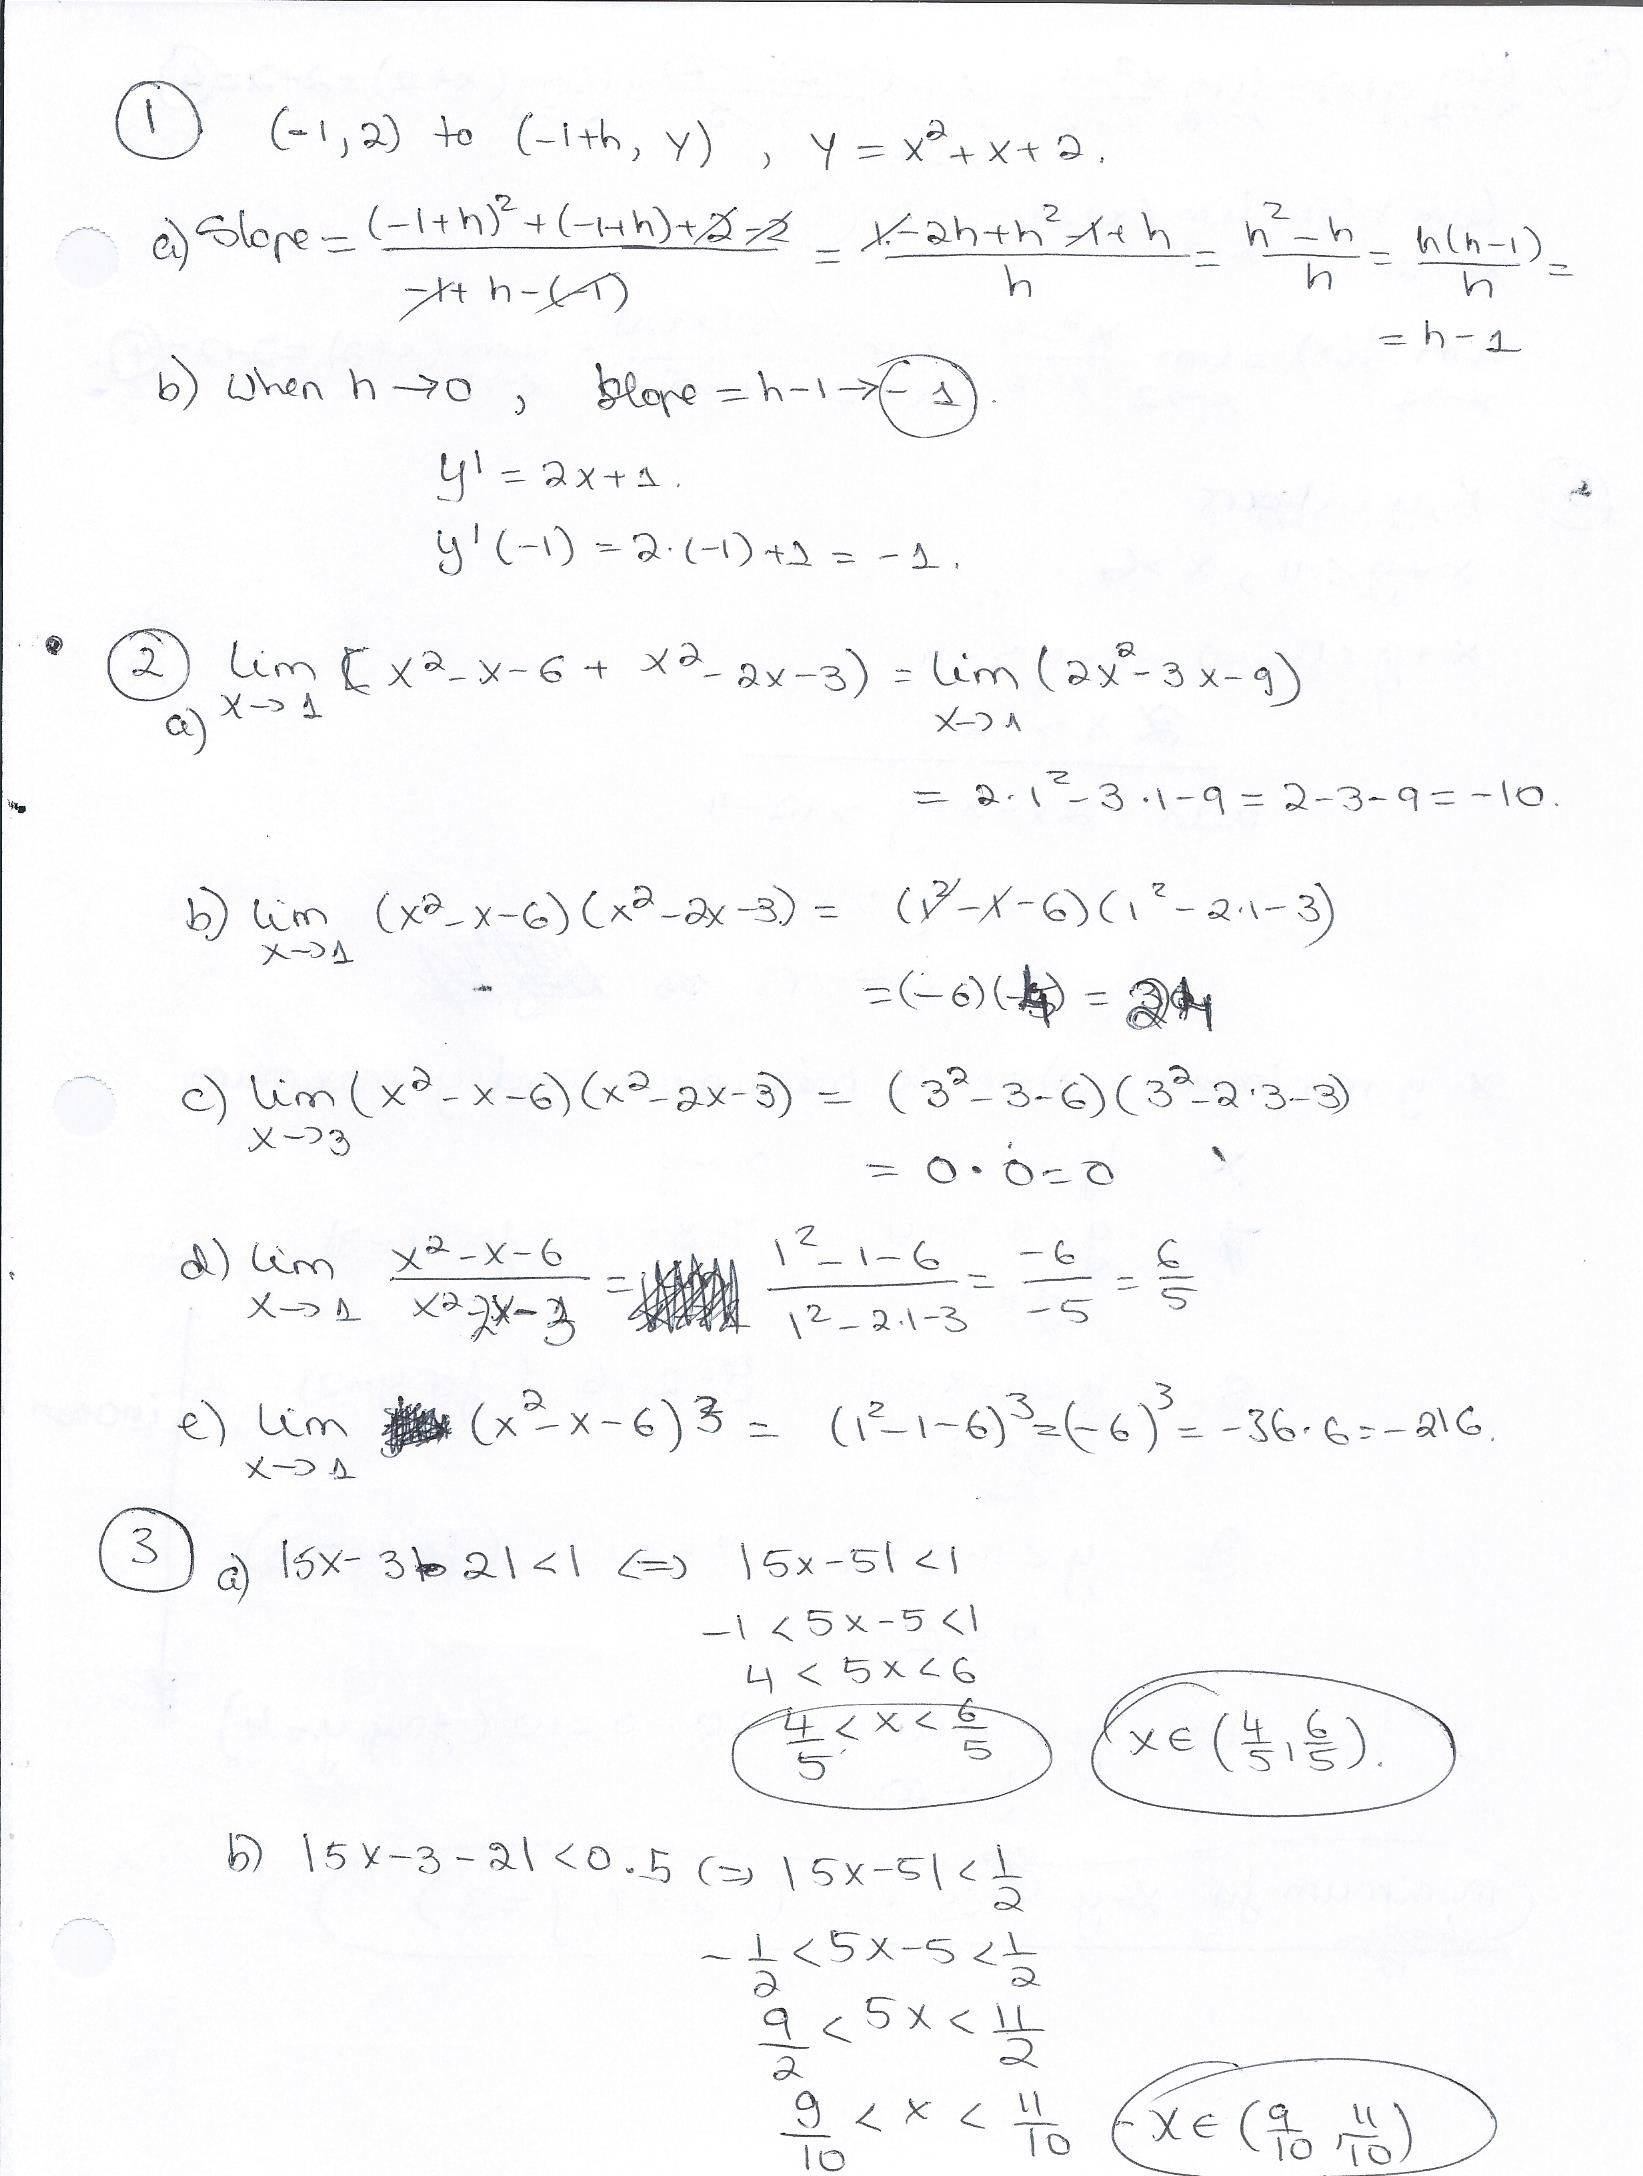 ① (-1, 2) to (-1+h, y) , y = x² + x + 2.
a) Slope = ((-1+h)² + (-1+h) + 2 - 2)/(-1 + h - (-1)) = (1 - 2h + h² - 1 + h)/h = (h² - h)/h = h(h-1)/h =
= h - 1
b) When h → 0 , slope = h - 1 → -1 .
y' = 2x + 1.
y'(-1) = 2·(-1) + 1 = -1.
② lim ( x² - x - 6 + x² - 2x - 3) = lim (2x² - 3x - 9)
a) x→1 x→1
= 2·1² - 3·1 - 9 = 2 - 3 - 9 = -10.
b) lim (x² - x - 6)(x² - 2x - 3) = (1² - 1 - 6)(1² - 2·1 - 3)
x→1
= (-6)(-4) = 24
c) lim (x² - x - 6)(x² - 2x - 3) = (3² - 3 - 6)(3² - 2·3 - 3)
x→3
= 0 · 0 = 0
d) lim (x² - x - 6)/(x² - 2x - 3) = (1² - 1 - 6)/(1² - 2·1 - 3) = -6/-5 = 6/5
x→1
e) lim (x² - x - 6)3 = (1² - 1 - 6)³ = (-6)³ = -36·6 = -216.
x→1
③ a) |5x - 3 - 2| < 1 <=> |5x - 5| < 1
-1 < 5x - 5 < 1
4 < 5x < 6
4/5 < x < 6/5 x ∈ (4/5, 6/5).
b) |5x - 3 - 2| < 0.5 <=> |5x - 5| < 1/2
-1/2 < 5x - 5 < 1/2
9/2 < 5x < 11/2
9/10 < x < 11/10 x ∈ (9/10, 11/10)